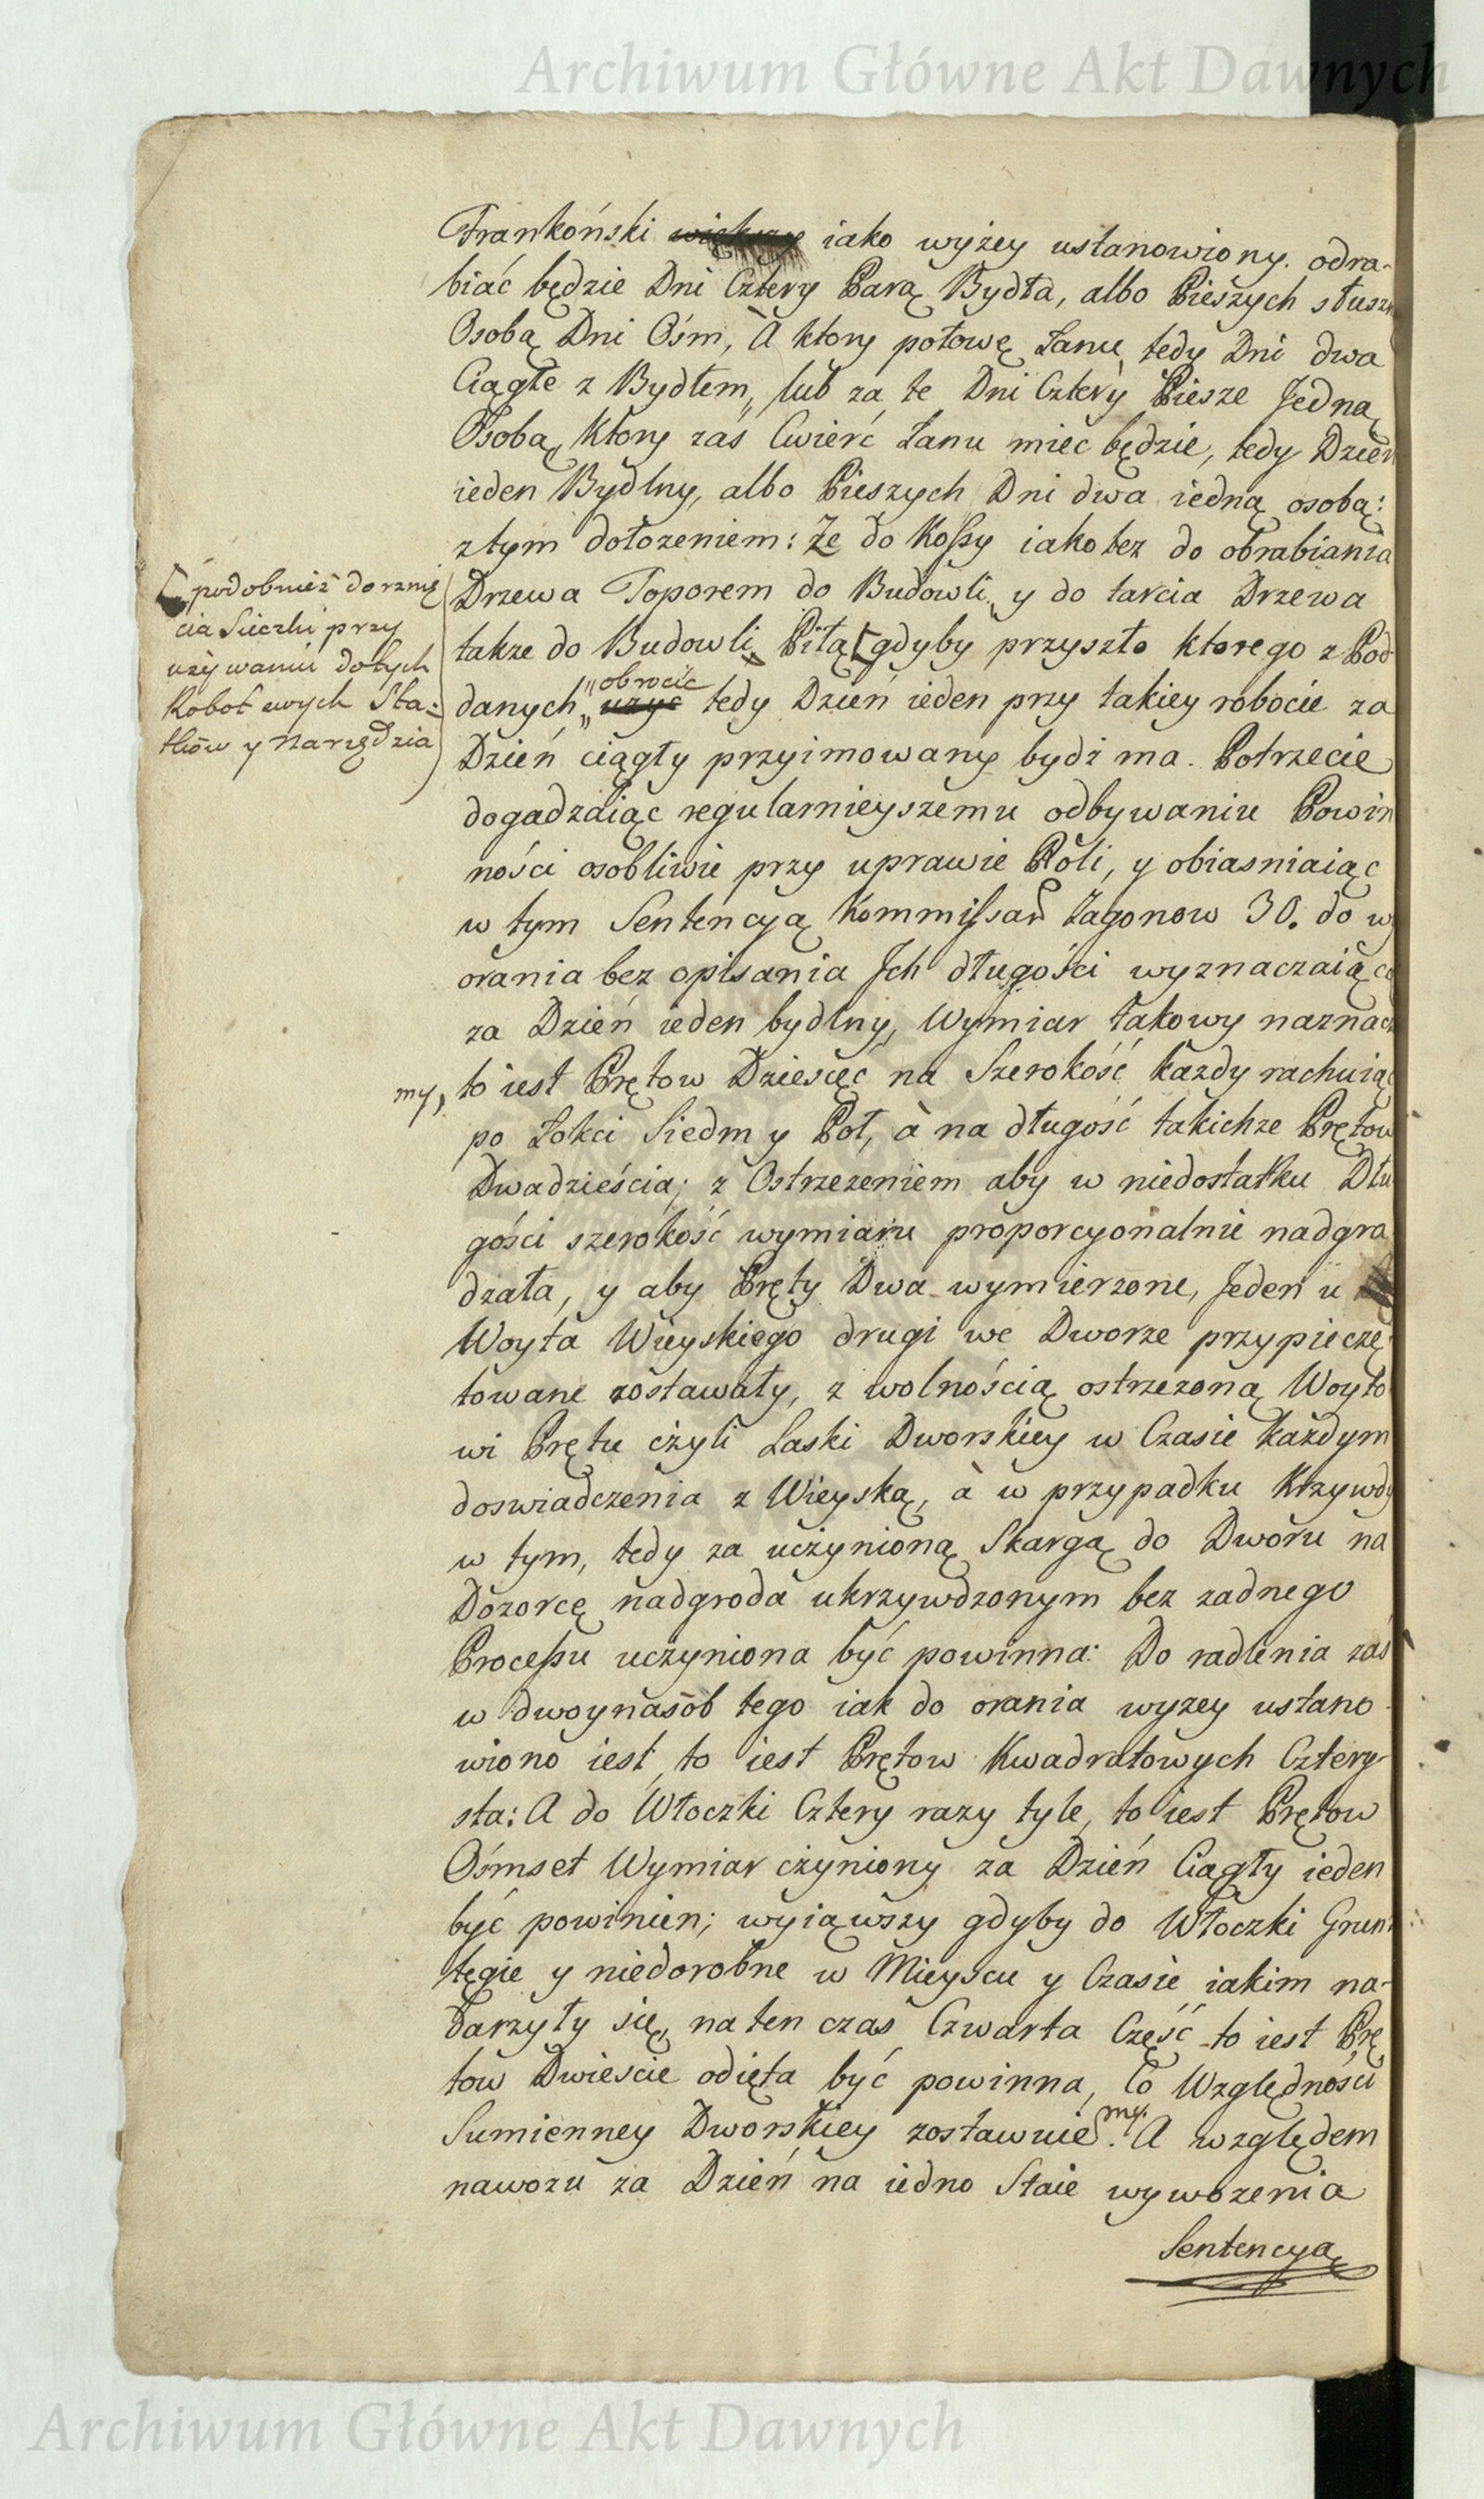 Archiwum Główne Akt Dawnych
Frankoński większy iako wyżey ustanowiony. odra-
biać będzie Dni Cztery Parą Bydła, albo Pieszych słuszn
Osobą Dni Ośm, A ktory połowę Łanu, tedy Dni dwa
Ciągłe z Bydłem, lub za te Dni Cztery Piesze Jedną
Osobą, Ktory zaś Cwierć Łanu miec będzie, tedy Dzien
ieden Bydlny, albo Pieszych Dni dwa iedną osobą:
z tym dołozeniem: Ze do Kossy iako tez do obrabiania
Drzewa Toporem do Budowli, y do tarcia Drzewa
takze do Budowli Piłą [gdyby przyszło ktorego z Pod
danych „obrocić
użyc tedy Dzień ieden przy takiey robocie za
Dzień ciągły przyimowany bydź ma. Potrzecie
dogadzaiąc regularnieyszemu odbywaniu Powin
ności osobliwie przy uprawie Roli, y obiasniaiąc
w tym Sentencyą Kommissar Zagonow 30. do wy
orania bez opisania Jch długości wyznaczaiąca
za Dzień ieden bydlny, Wymiar takowy naznacz
my, to iest Prętow Dziesięć na Szerokość każdy rachuiąc
po Łokci Siedm y Poł, à na długość takichze Prętow
Dwadzieścia; z Ostrzezeniem aby w niedostatku Dłu
gości szerokość wymiaru proporcyonalnie nadgra
dzała, y aby Pręty Dwa wymierzone, Jeden u
Woyta Wieyskiego drugi we Dworze przypieczę
towane zostawały, z wolnością ostrzezoną Woyto
wi Prętu czyli Laski Dworskiey w Czasie każdym
doswiadczenia z Wieyską, à w przypadku Krzywdy
w tym, tedy za uczynioną Skargą do Dworu na
Dozorcę nadgroda ukrzywdzonym bez zadnego
Processu uczyniona być powinna: Do radlenia zaś
w dwoynasób tego iak do orania wyzey ustano
wiono iest, to iest Prętow Kwadratowych Cztery
sta: A do Włoczki Cztery razy tyle, to iest Prętow
Ośmset Wymiar czyniony za Dzień Ciągły ieden
być powinien; wyiąwszy gdyby do Włoczki Grun
tęgie y niedorobne w Mieyscu y Czasie iakim na-
darzyły się, na ten czas Czwarta Część to iest Prę
tow Dwieście odięta być powinna, co Względności
Sumienney Dworskiey zostawuie my. A względem
nawozu za Dzień na iedno Staie wywozenia
Sentencya
[podobnież do rznię
cia Sieczki przy
używaniu do tych
Robot swych Sta=
tków y Narzędzia
Archiwum Główne Akt Dawnych